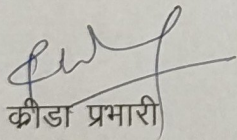 क्रीडा प्रभारी